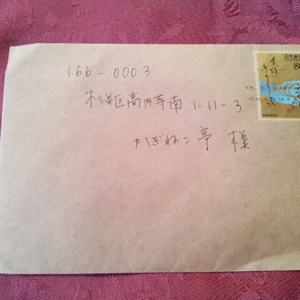 166-0003
杉並区高円寺南1-11-3
かぎねこ亭 様
80